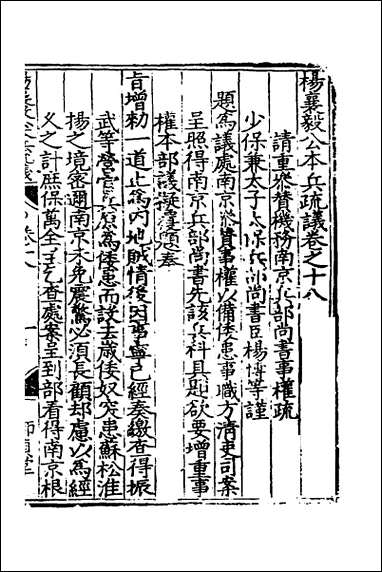 楊襄毅公本兵疏議卷之十八
請重參贊機務南京兵部尚書事權疏
少保兼太子太保兵部尚書臣楊博等謹
題為議處南京參贊事權以備倭患事職方清吏司案
呈照得南京兵部尚書先該兵科具題欲要增重事
權本部議擬覆題奉
旨增勑一道止為內地賊情後因事寧已經奏繳查得振
武等營官兵原為倭患而設壬歲倭奴突患蘇松淮
揚之境密邇南京未免震驚必須長顧却慮以為經
久之計庶保萬全等乞查處案呈到部看得南京根